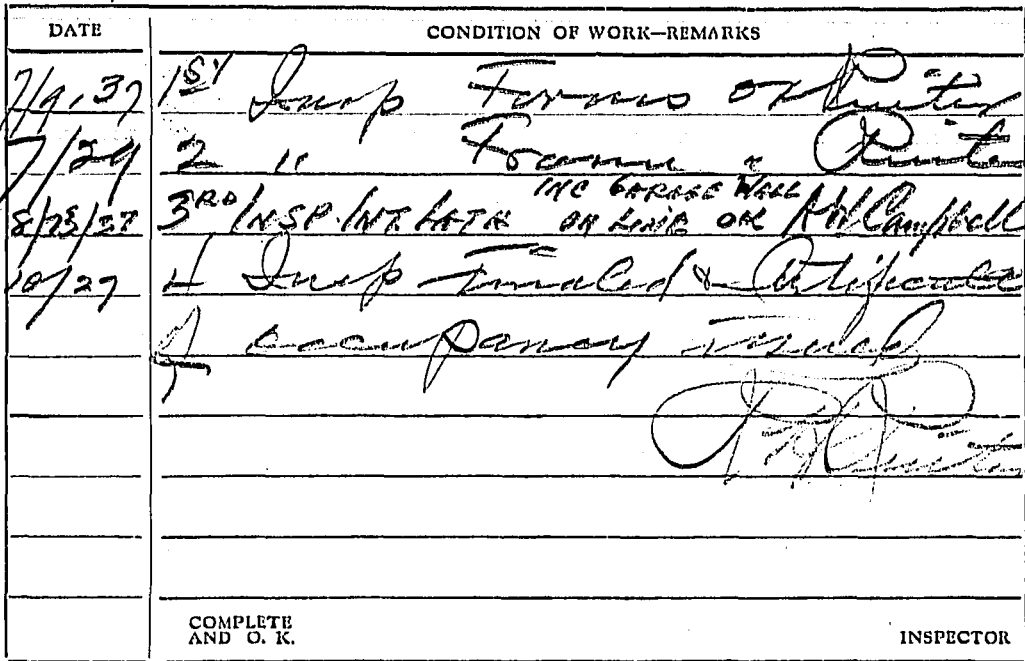 DATE CONDITION OF WORK—REMARKS
7/9, 37 1st Insp Forms OK
7/29 2 " Frame "
8/25/37 3RD INSP. INT. LATH INC GARAGE WALL ON LINE OK Campbell
10/27 4 Insp Finaled & Certificate
of occupancy Issued
COMPLETE
AND O. K. INSPECTOR